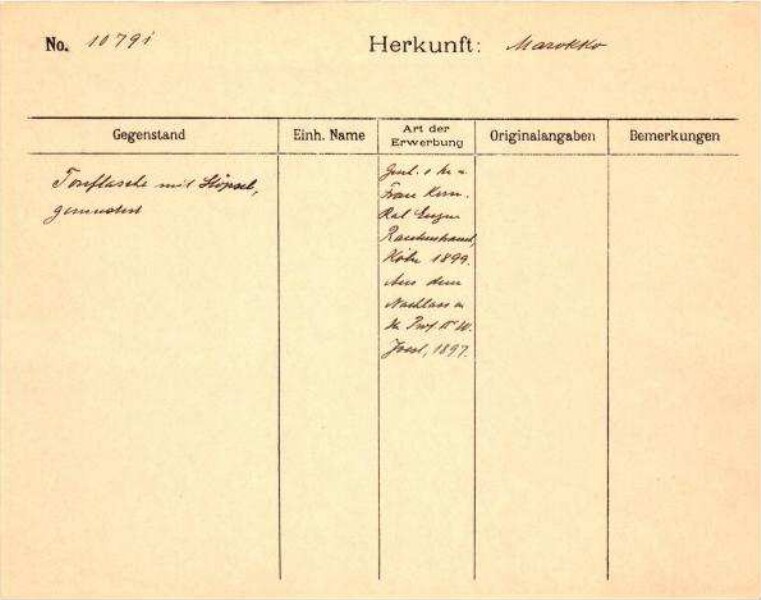 No. 1079i
Herkunft: Marokko
Gegenstand
Einh. Name
Art der
Erwerbung
Originalangaben
Bemerkungen
Tonflasche mit Stöpsel,
gemustert
Frau Kom.
Rat Eugen
Rautenstrauch,
Köln 1899.
Aus dem
Nachlass
Prof. Dr W.
Joest, 1897.